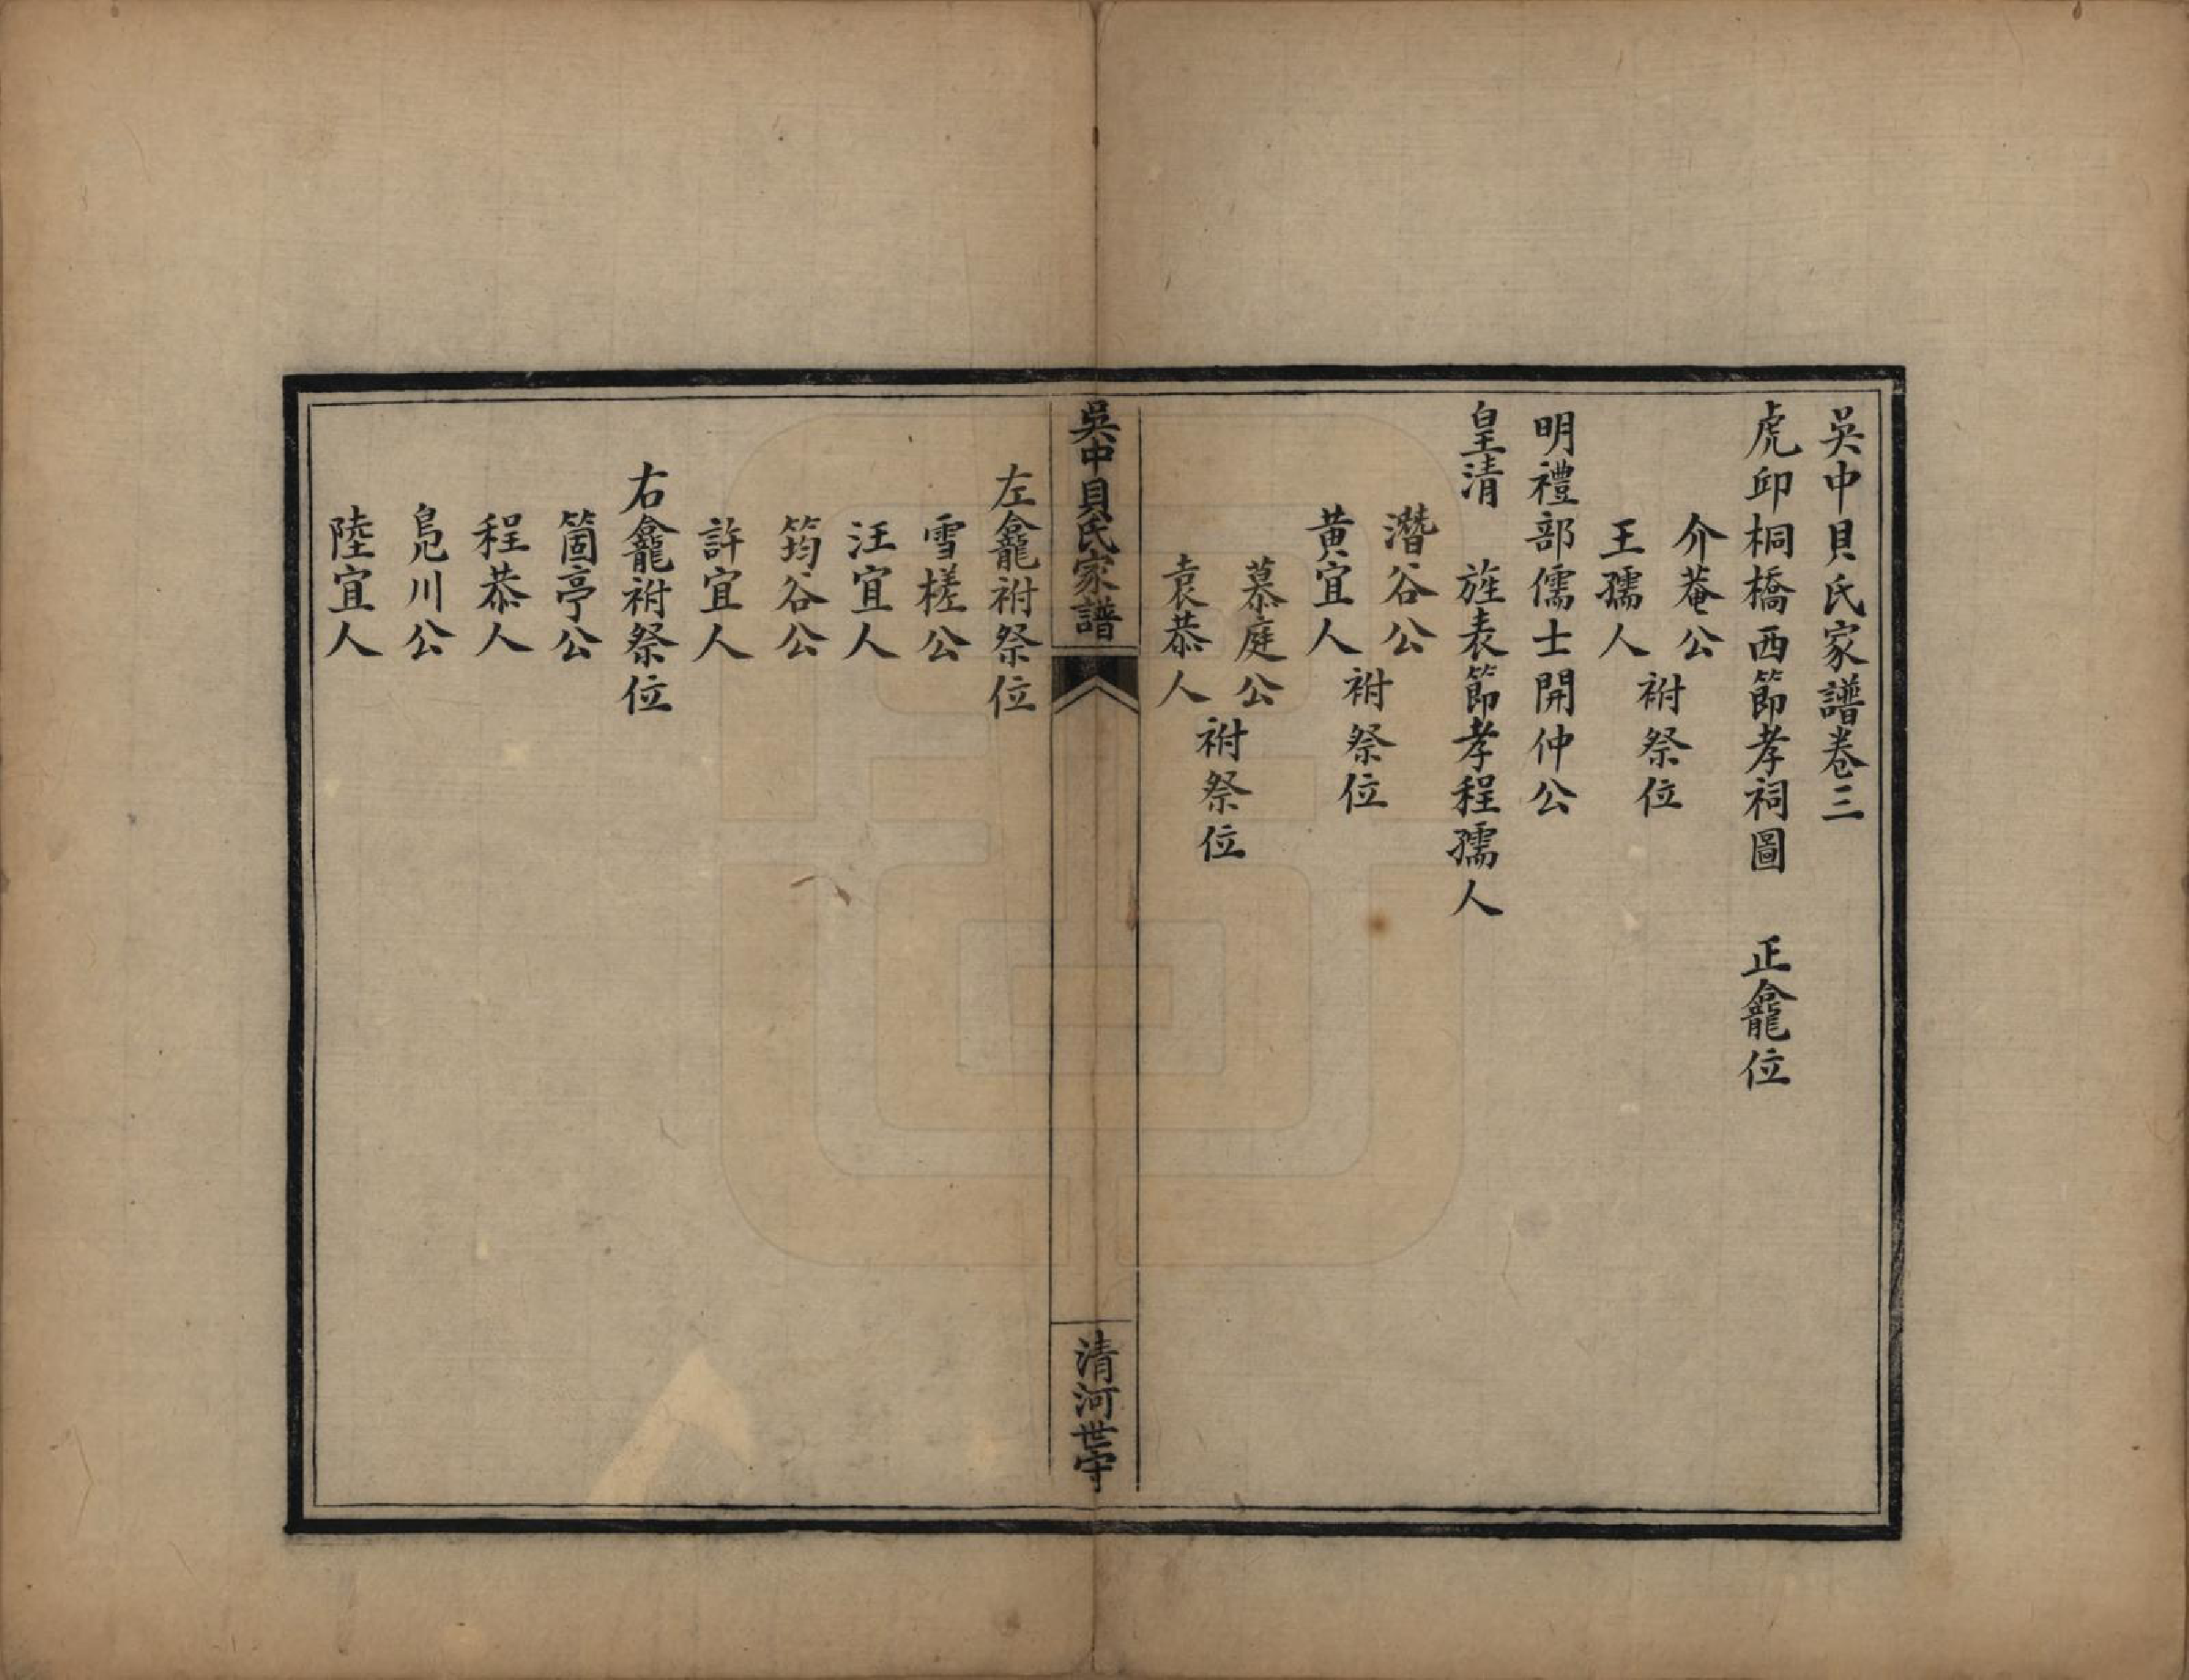 吳中貝氏家譜卷三
虎邱桐橋西節孝祠圖　正龕位
介菴公
王孺人
祔祭位
明禮部儒士開仲公
皇清　旌表節孝程孺人
潛谷公
黄宜人
祔祭位
慕庭公
袁恭人
祔祭位
吳中貝氏家譜
清河世守
左龕祔祭位
雪槎公
汪宜人
筠谷公
許宜人
右龕祔祭位
箇亭公
程恭人
鳧川公
陸宜人